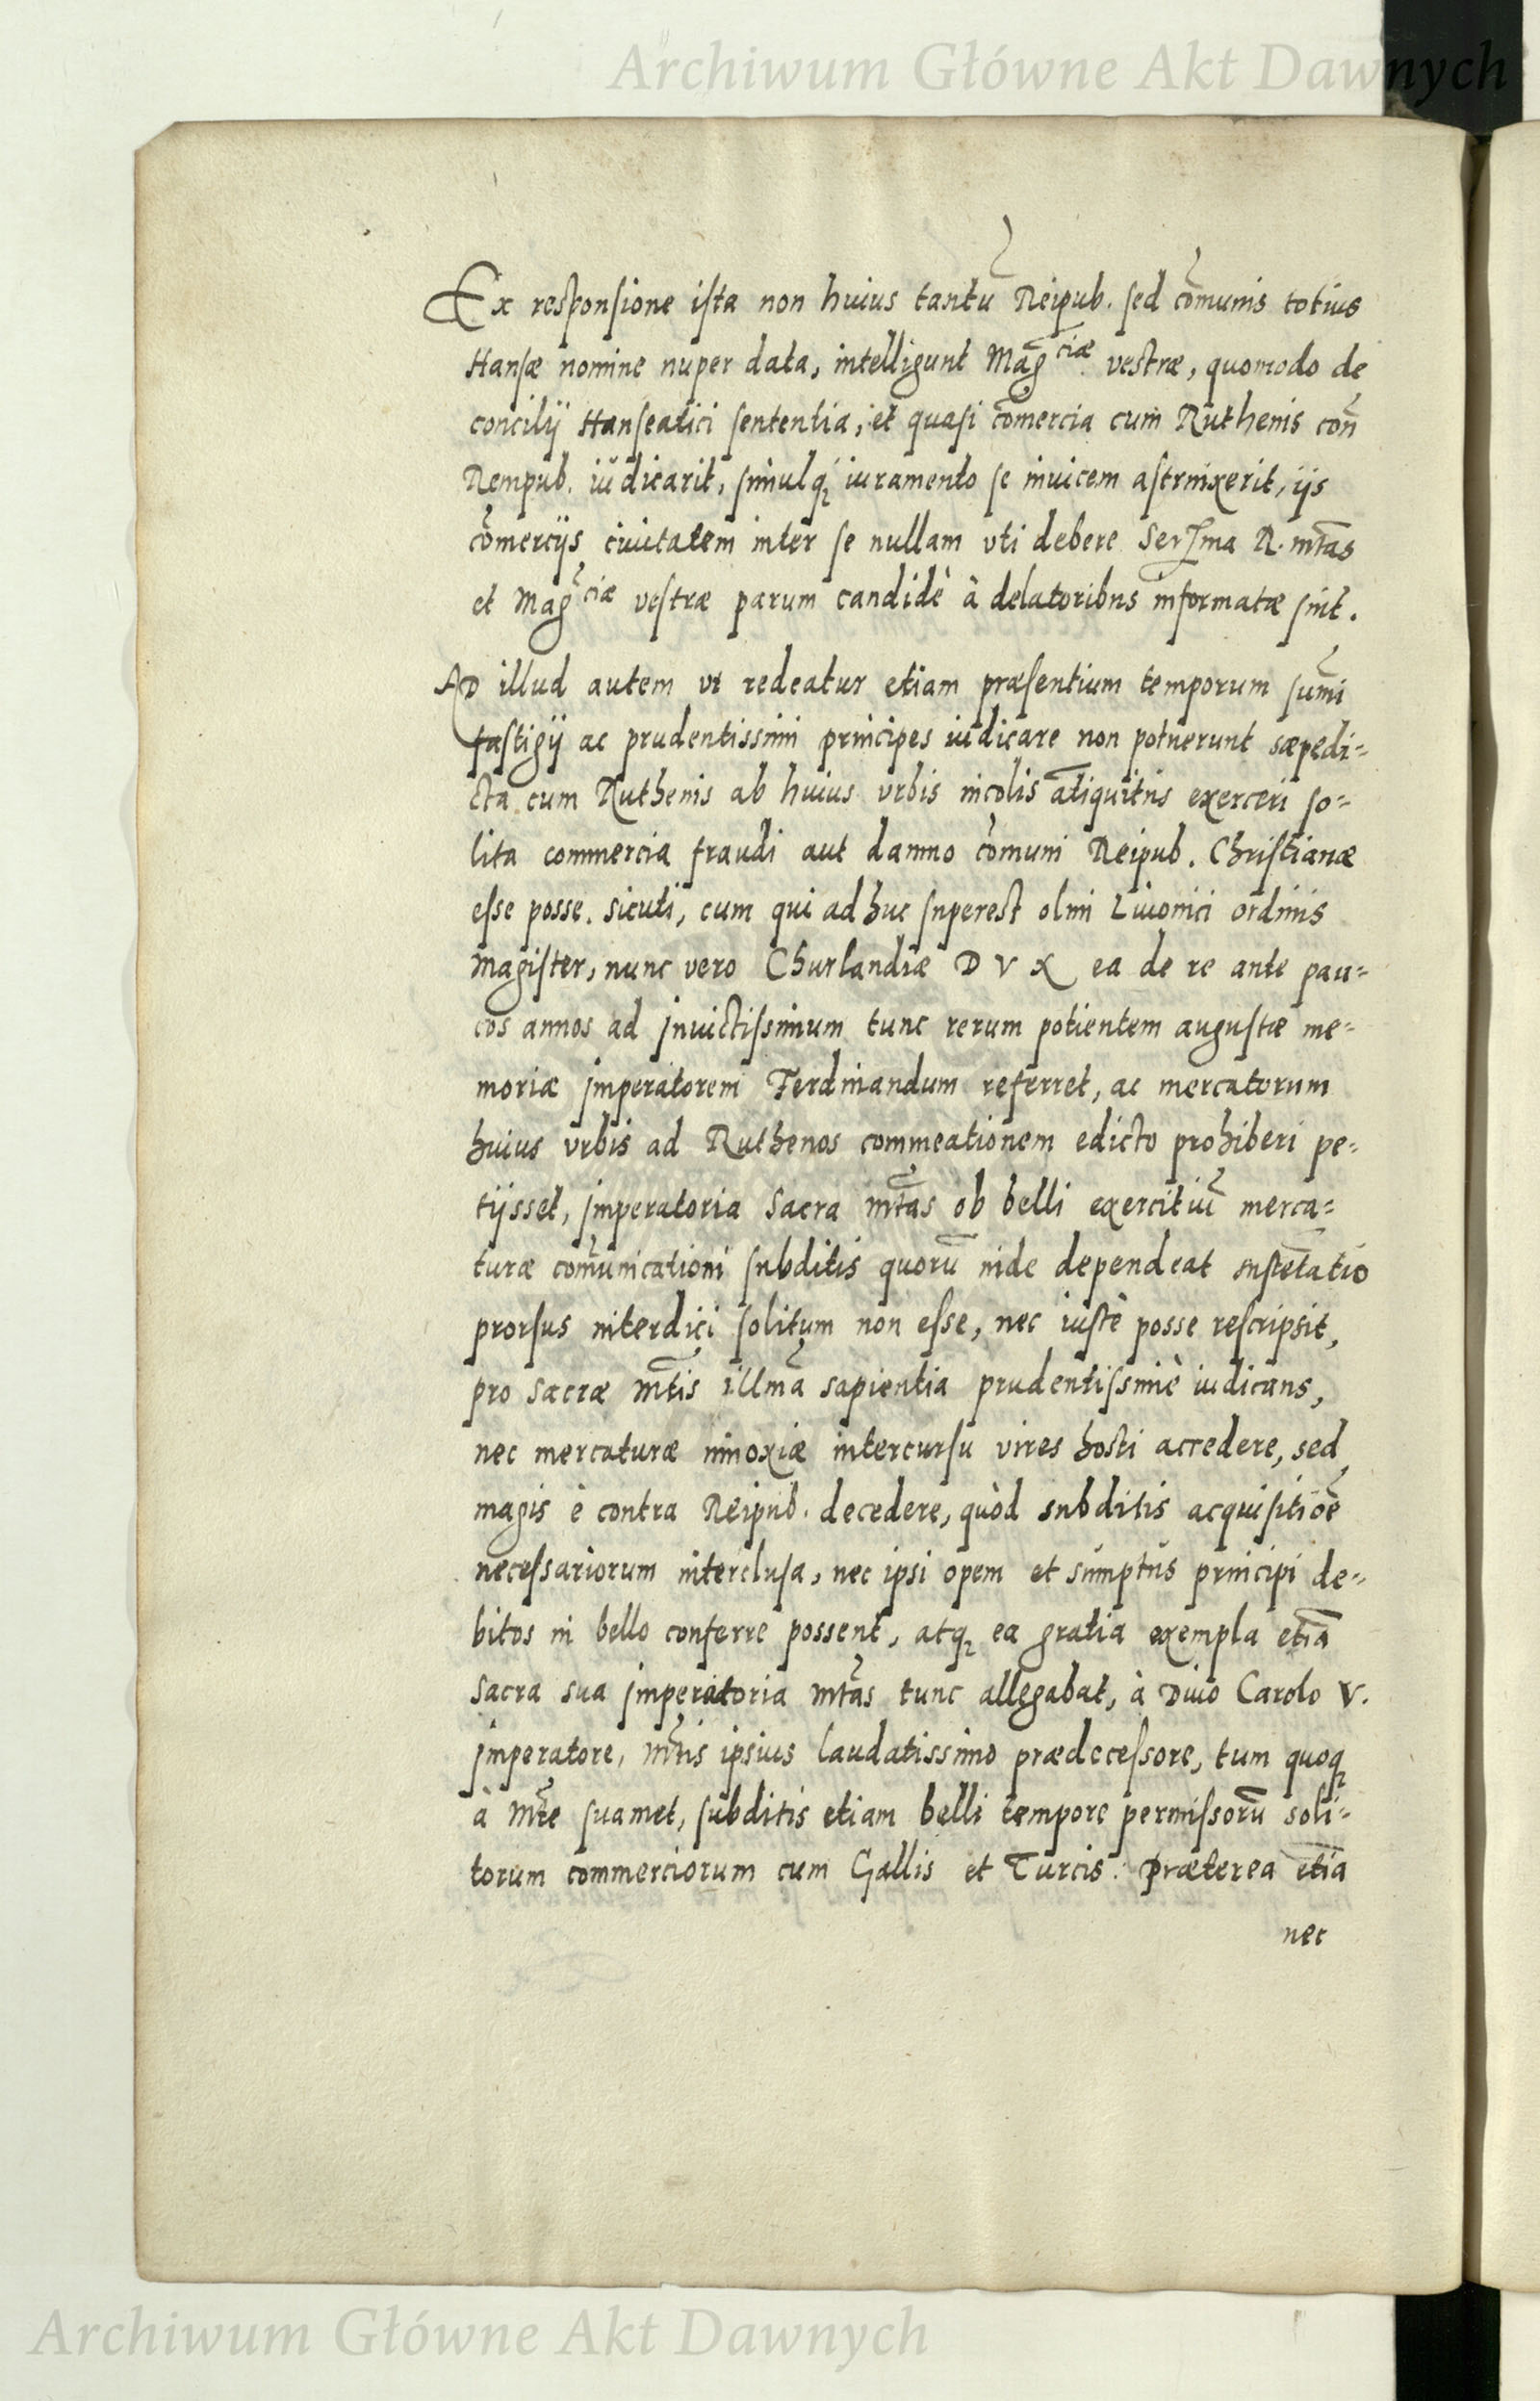 Archiwum Główne Akt Dawnych
Ex responsione ista non huius tantū Reipub. sed cōmunis totius
Hansæ nomine nuper data, intelligunt Mag^ciæ vestræ, quomodo de
concilij Hanseatici sententia, et quasi cōmercia cum Ruthenis con̄
Rempub. iudicarit, simulq́ iuramento se inuicem astrinxerit, ijs
cōmercijs ciuitatem inter se nullam vti debere Serma R. mtas
et Mag^ciæ vestræ parum candidè à delatoribus informatæ sint.
AD illud autem vt redeatur etiam præsentium temporum sum̄i
fastigij ac prudentissimi principes iudicare non potuerunt sæpedi=
cta cum Ruthenis ab huius vrbis incolis ātiquitus exerceri so=
lita commercia fraudi aut damno cōmuni Reipub. Christianæ
esse posse. sicuti, cum qui adhuc superest olim Liuonici ordinis
magister, nunc vero Churlandiæ DVX ea de re ante pau=
cos annos ad jnuictissimum tunc rerum potientem augustæ me=
moriæ jmperatorem Ferdinandum referret, ac mercatorum
huius vrbis ad Ruthenos commeationem edicto prohiberi pe=
tijsset, jmperatoria Sacra mtas ob belli exercitiū merca=
turæ com̄unicationi subditis quorū inde dependeat sustētatio
prorsus interdici solitum non esse, nec iustè posse rescripsit,
pro sacræ mtis illma sapientia prudentissimè iudicans,
nec mercaturæ innoxiæ intercursu vires hosti accedere, sed
magis è contra Reipub. decedere, quòd subditis acquisitiōe
necessariorum interclusa, nec ipsi opem et sumptus principi de=
bitos in bello conferre possent, atq ea gratia exempla etiā
sacra sua jmperatoria mtas tunc allegabat, à Diuo Carolo V.
jmperatore, mtis ipsius laudatissimo prædecessore, tum quoq
à mte suamet, subditis etiam belli tempore permissorū soli=
torum commerciorum cum Gallis et Turcis. Præterea etiā
nec
Archiwum Główne Akt Dawnych